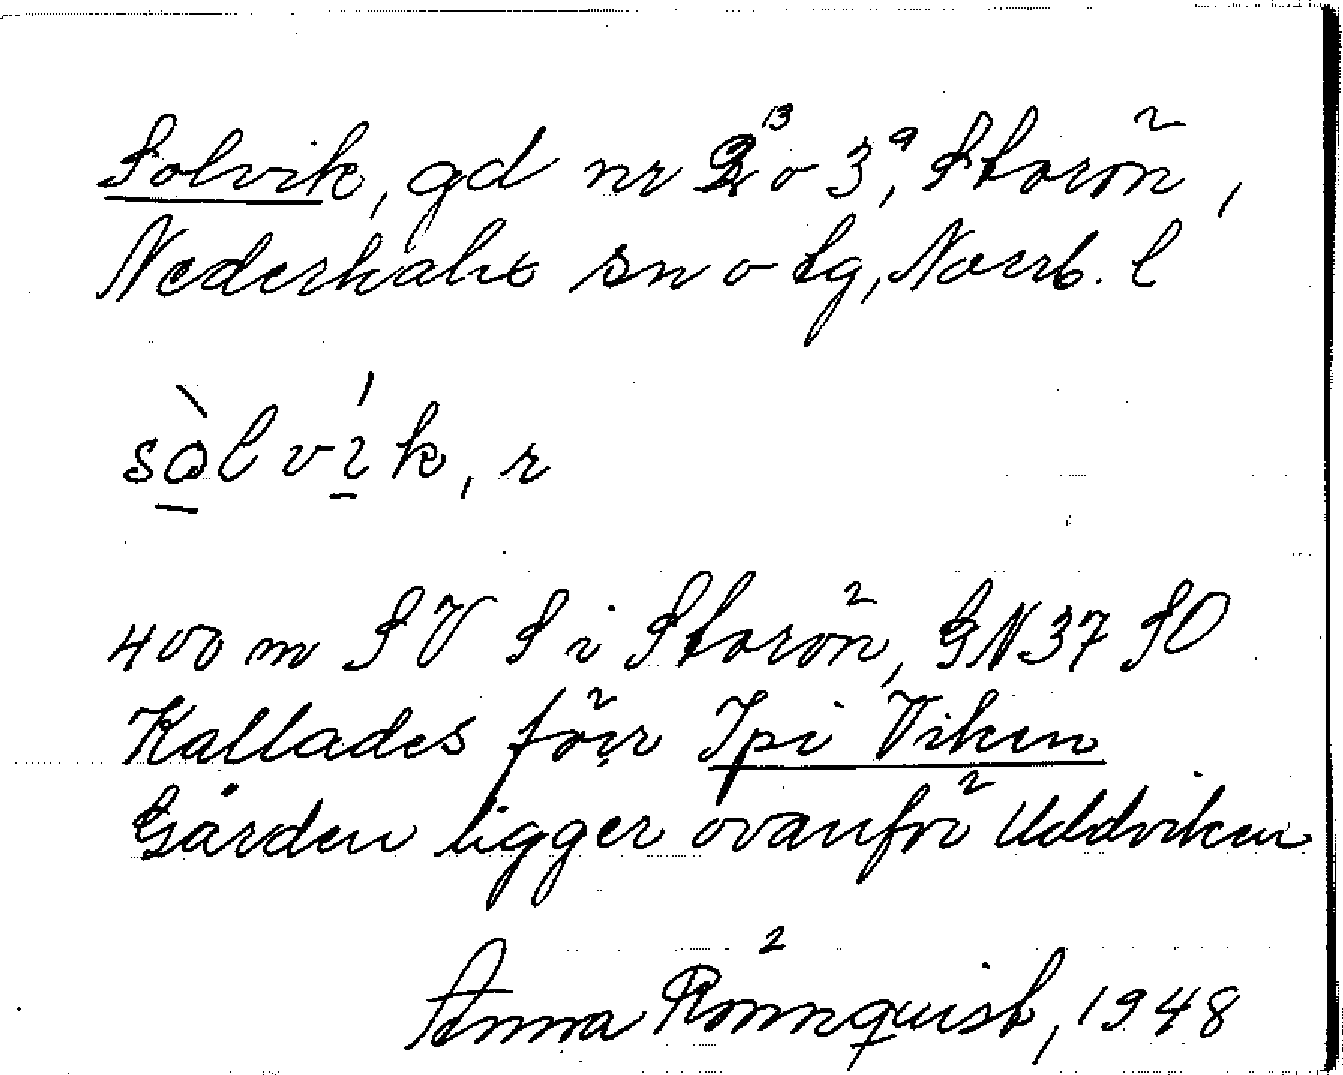 Solvik, gd nr 2¹³ o 3⁹, Storön,
Nederkalix sn o tg, Norrb. l
sòlvík, r
400 m SV S i Storön, GN37 SO
Kallades förr Ipi Viken
Gården ligger ovanför Uddviken
Anna Rönnquist, 1948